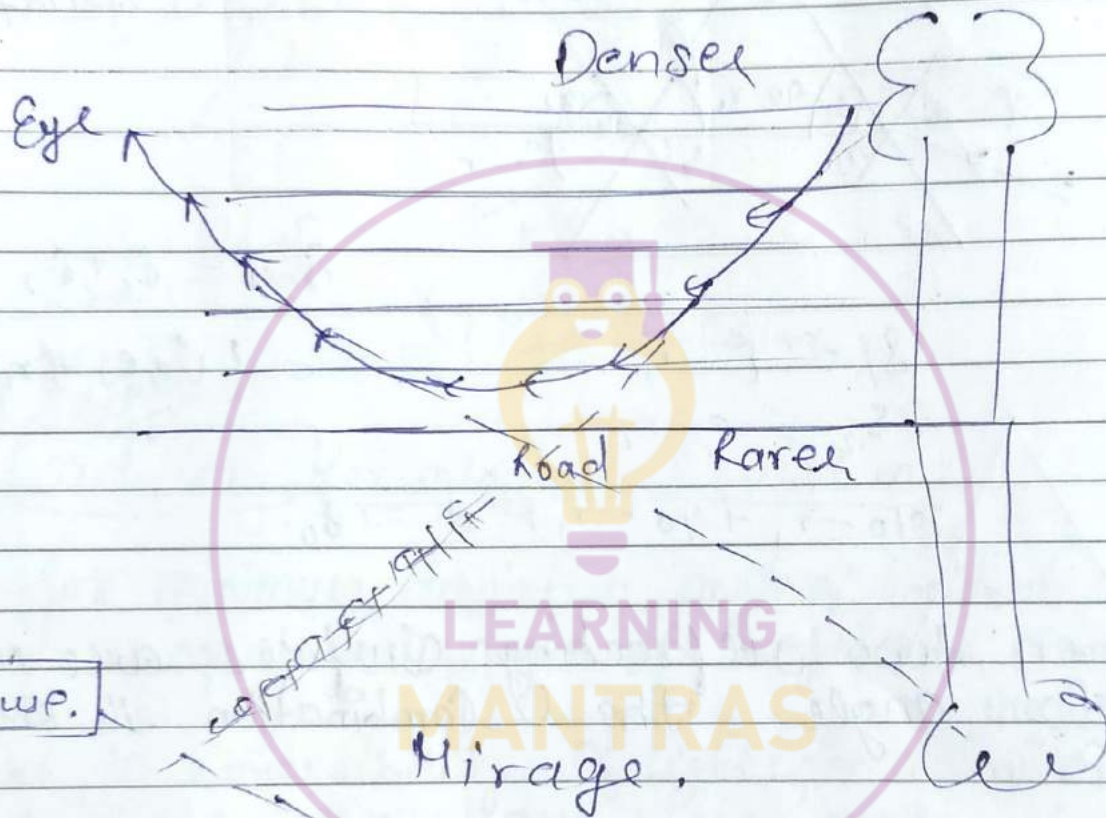 Denser
Eye
Road Rarer
LEARNING
MANTRAS
Mirage.